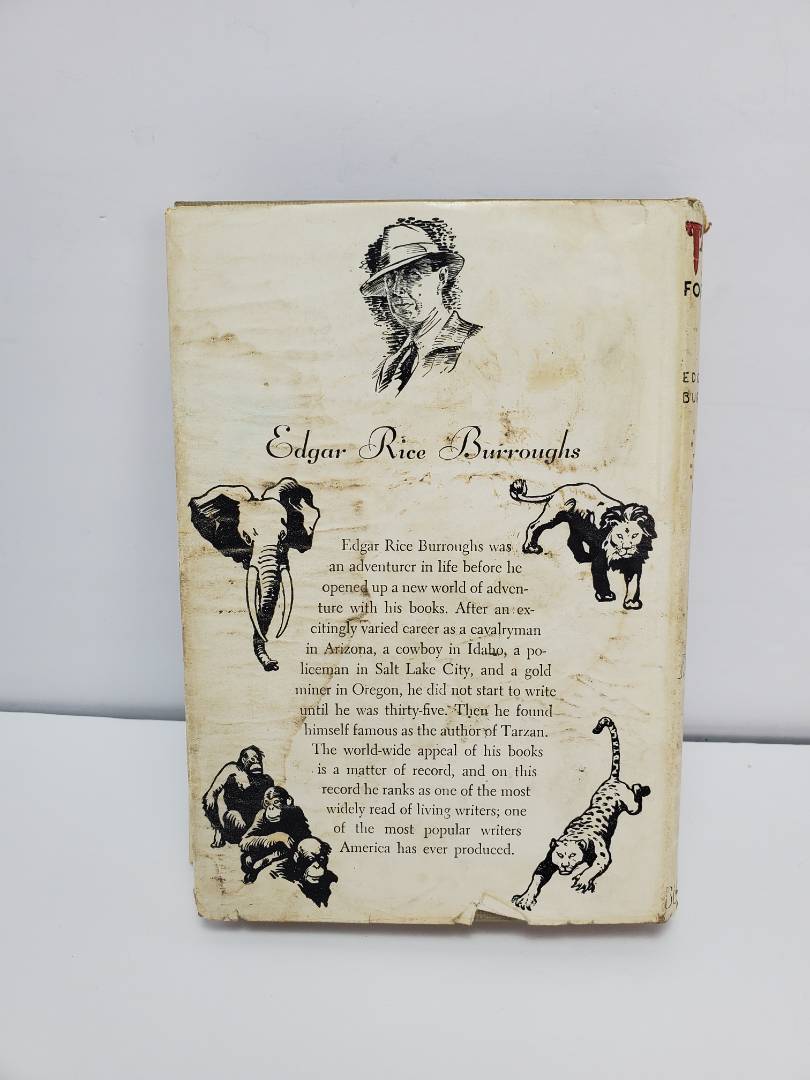 Edgar Rice Burroughs
Edgar Rice Burroughs was
an adventurer in life before he
opened up a new world of adven-
ture with his books. After an ex-
citingly varied career as a cavalryman
in Arizona, a cowboy in Idaho, a po-
liceman in Salt Lake City, and a gold
miner in Oregon, he did not start to write
until he was thirty-five. Then he found
himself famous as the author of Tarzan.
The world-wide appeal of his books
is a matter of record, and on this
record he ranks as one of the most
widely read of living writers; one
of the most popular writers
America has ever produced.
T
FO
ED
BU